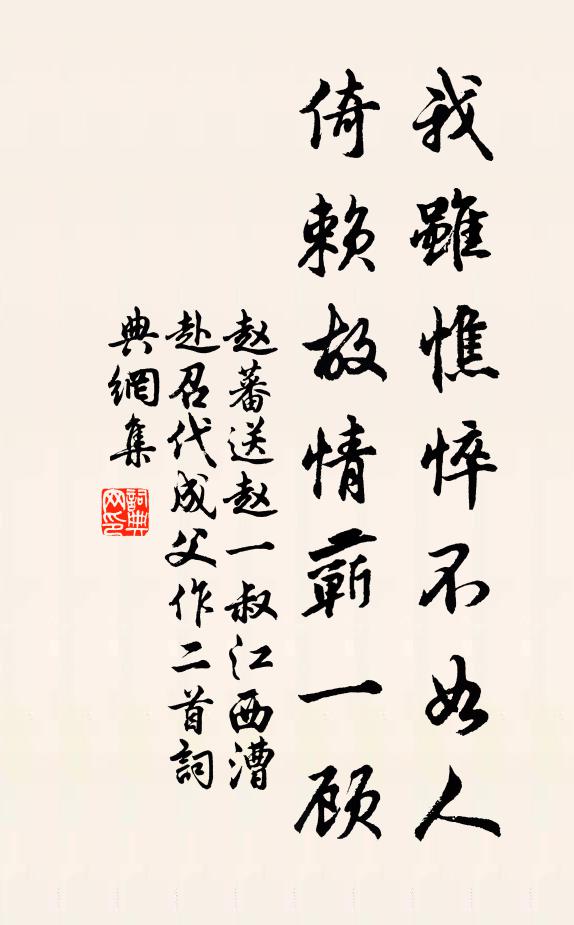 我雖憔悴不如人
倚賴故情蘄一顾
赵蕃送赵一叔江西漕
赴召代成父作二首詞
典網集
詞典網印